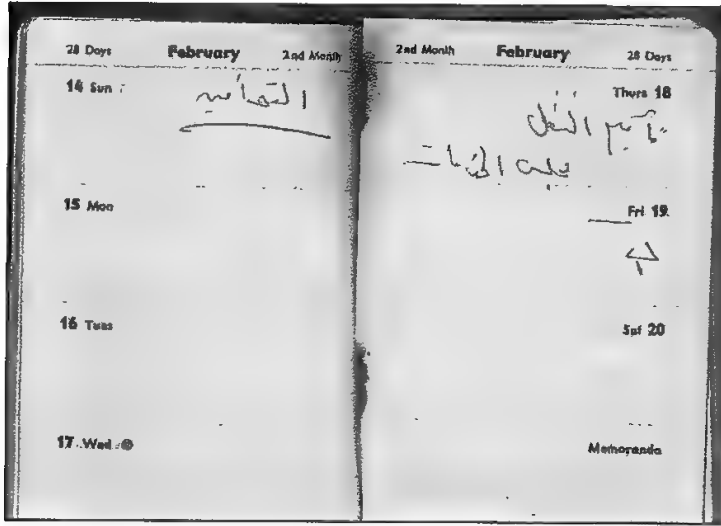 28 Days February 2nd Month
14 Sun
15 Mon
16 Tues
17 Wed
2nd Month February 28 Days
Thurs 18
تأميم النقل
Fri 19
Sat 20
Memoranda